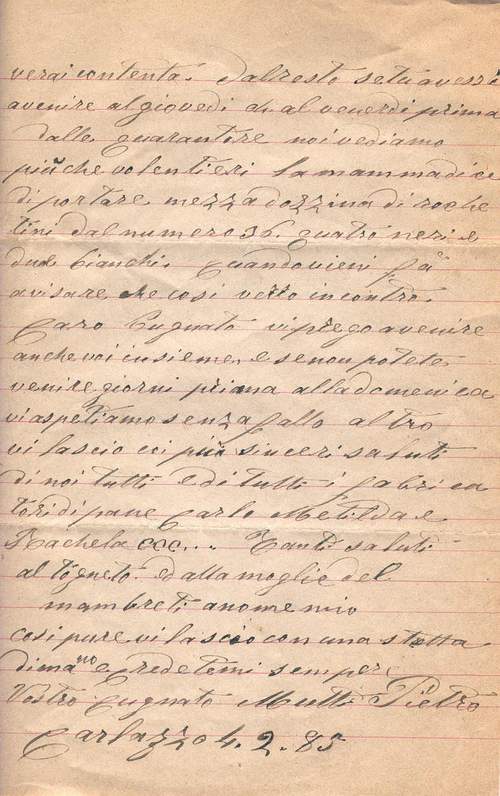 verai contenta. Dalresto setu avessi
avenire al giovedi o. al venerdi prima
dalle quarantire noi vediamo
piu che volentieri la mamma dice
di portare mezza dozzina di roche
tini dal numero 36. quatri neri e
due bianchi. Quando vieni fa
avisare che cosi vetto incontro.
Caro Cugnato vi prego avenire
anche voi insieme, e se non potete
venire giorni prima alla domenica
vi aspetiamo senza fallo altro
vi lascio coi più sinceri saluti
di noi tutti e di tutti i fabrica
tori di pane Carlo Metilda e
Rachela ecc... Tanti saluti
al togneto. ed alla moglie del
mambreti a nome mio
cosi pure vi lascio con una stretta
di mano e credetemi sempre
Vostro Cugnato Mutti Pietro
Carlazzo 4. 2. 85